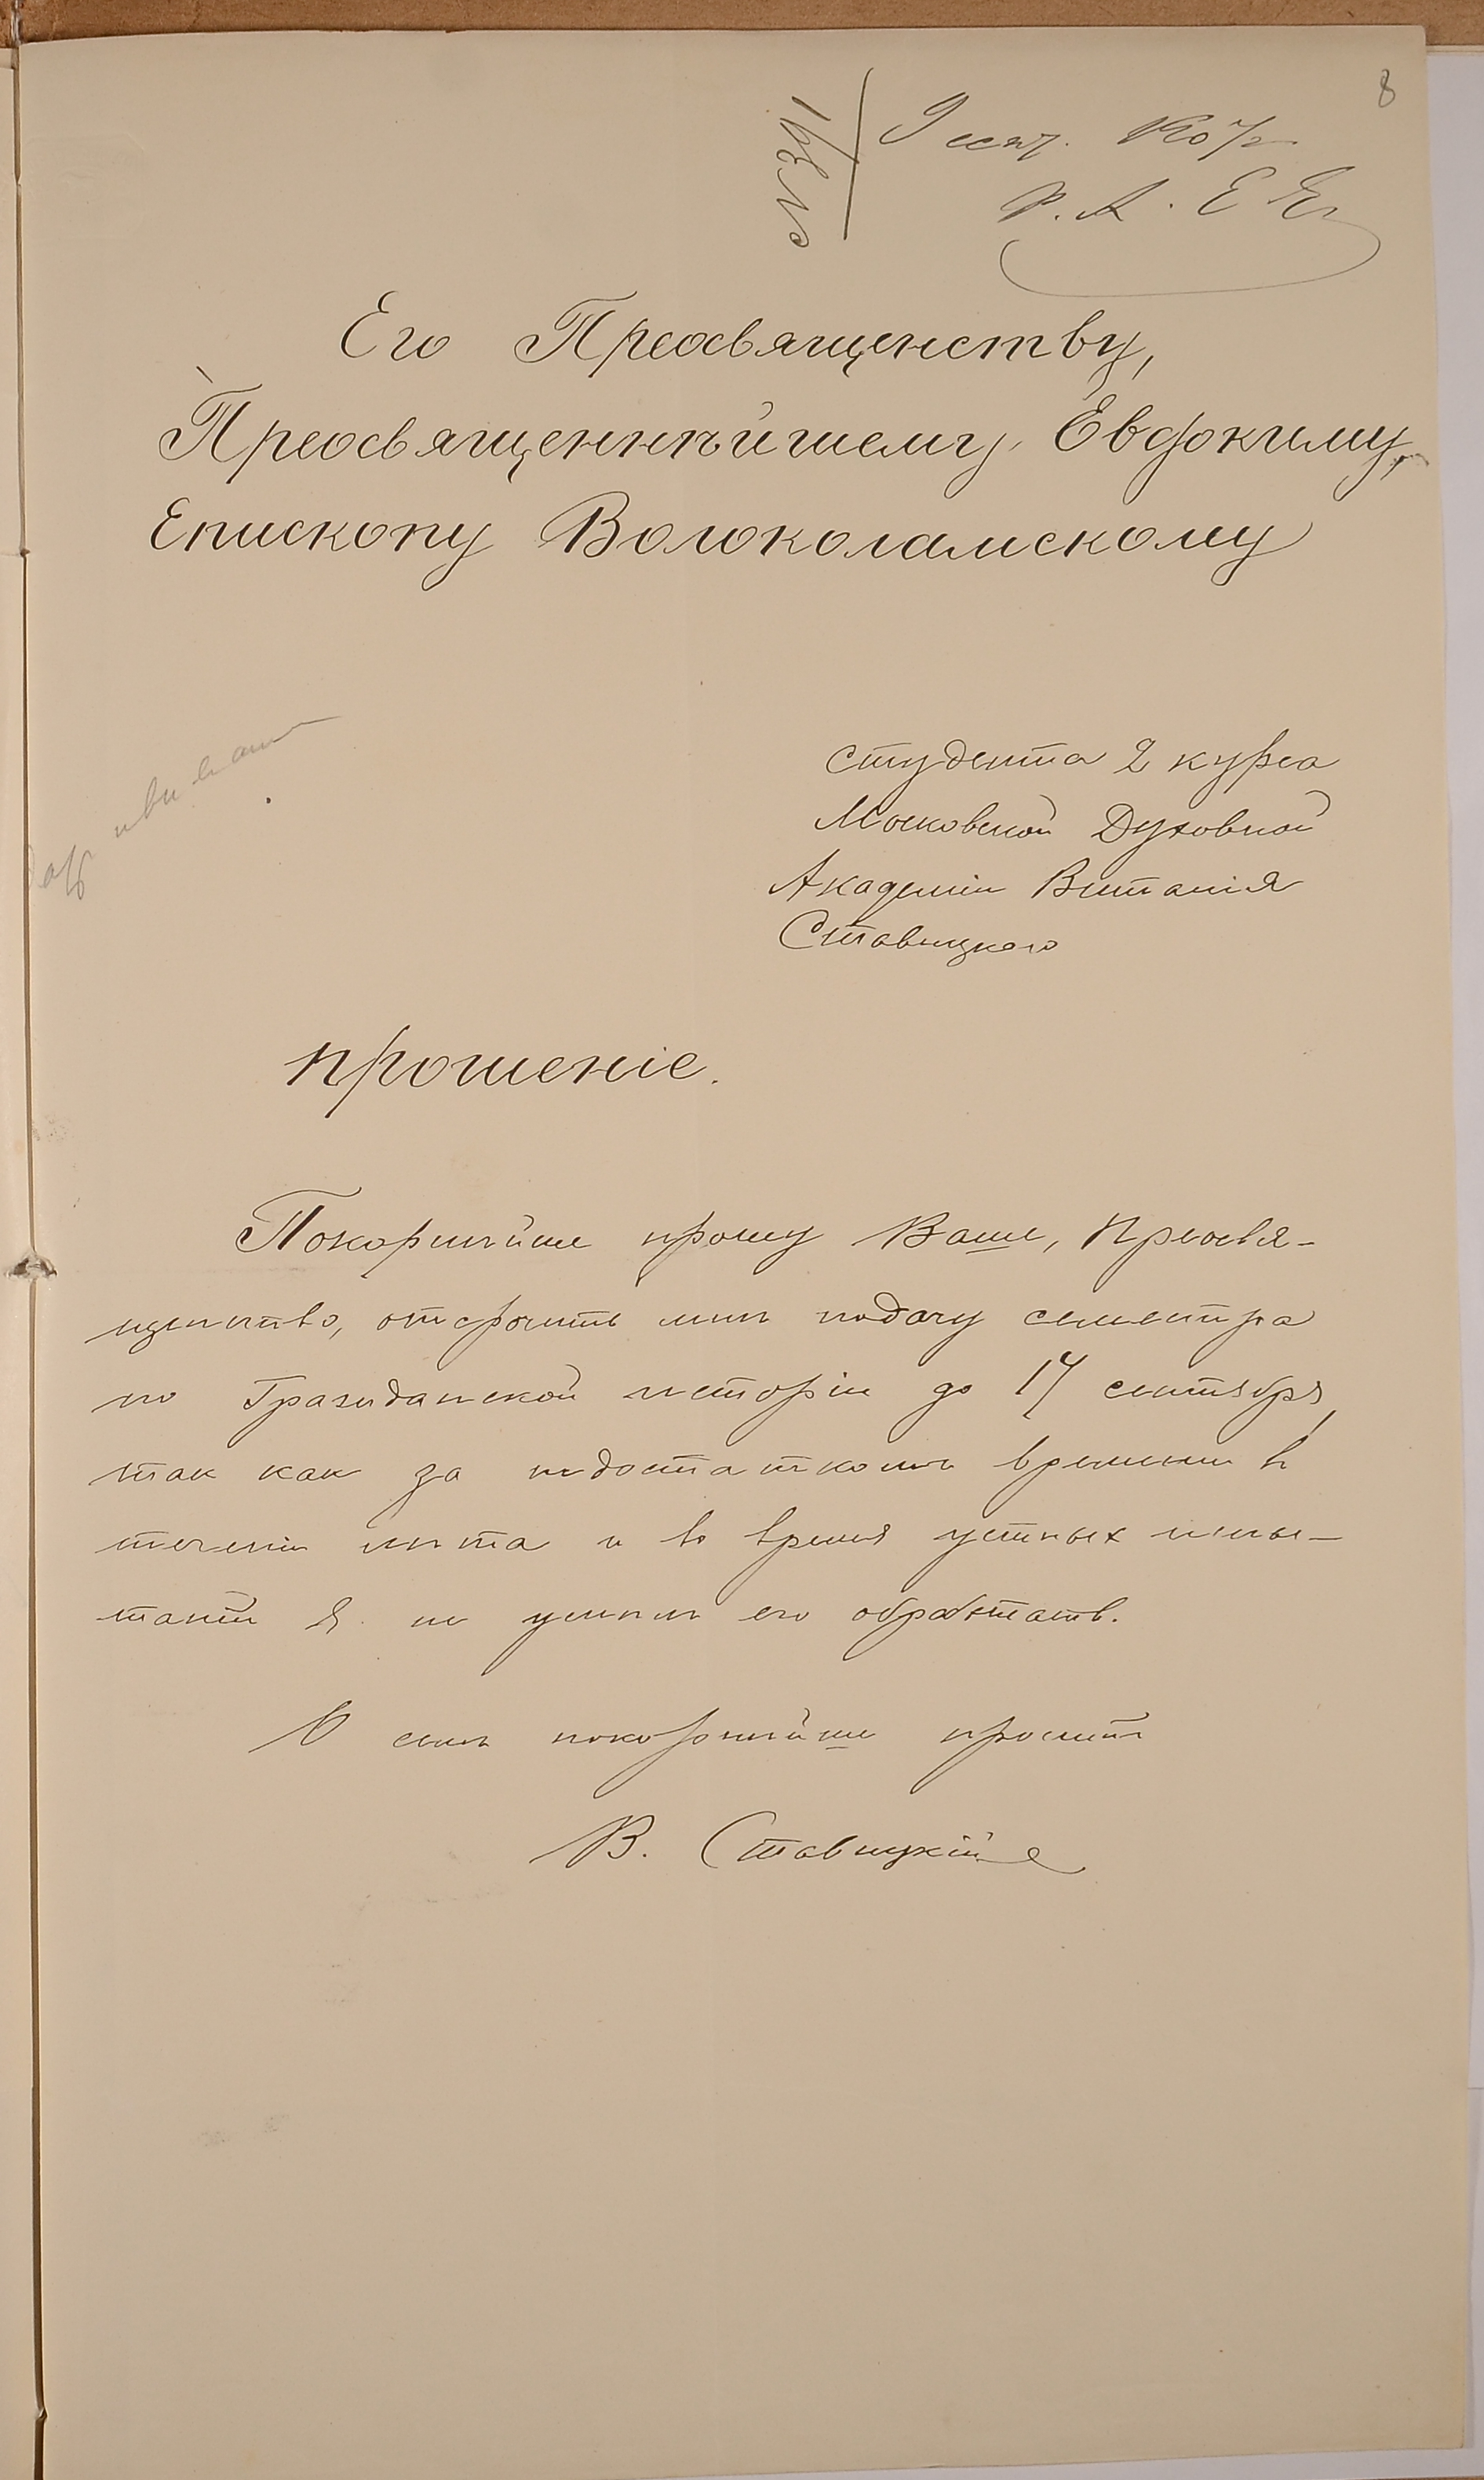 8
№ 361
9 сент. 1907 г.
Р. А. Е. Е.
Его Преосвященству,
Преосвященнѣйшему Евдокиму,
Епископу Волоколамскому
студента 2 курса
Московской Духовной
Академіи Виталія
Ставицкаго
прошеніе.
Покорнѣйше прошу Ваше, Преосвя-
щенство, отсрочить мнѣ подачу семестра
по Гражданской исторіи до 17 сентября,
так как за недостатком времени в
теченіи лѣта и во время устных испы-
таній я не успѣл его обработать.
О сем покорнѣйше просит
В. Ставицкій